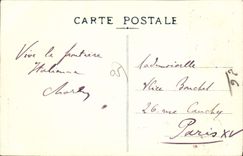 CARTE POSTALE
Vive la
Italienne
Mademoiselle
Alice Bouchet
26 rue Cauchy
Paris XV